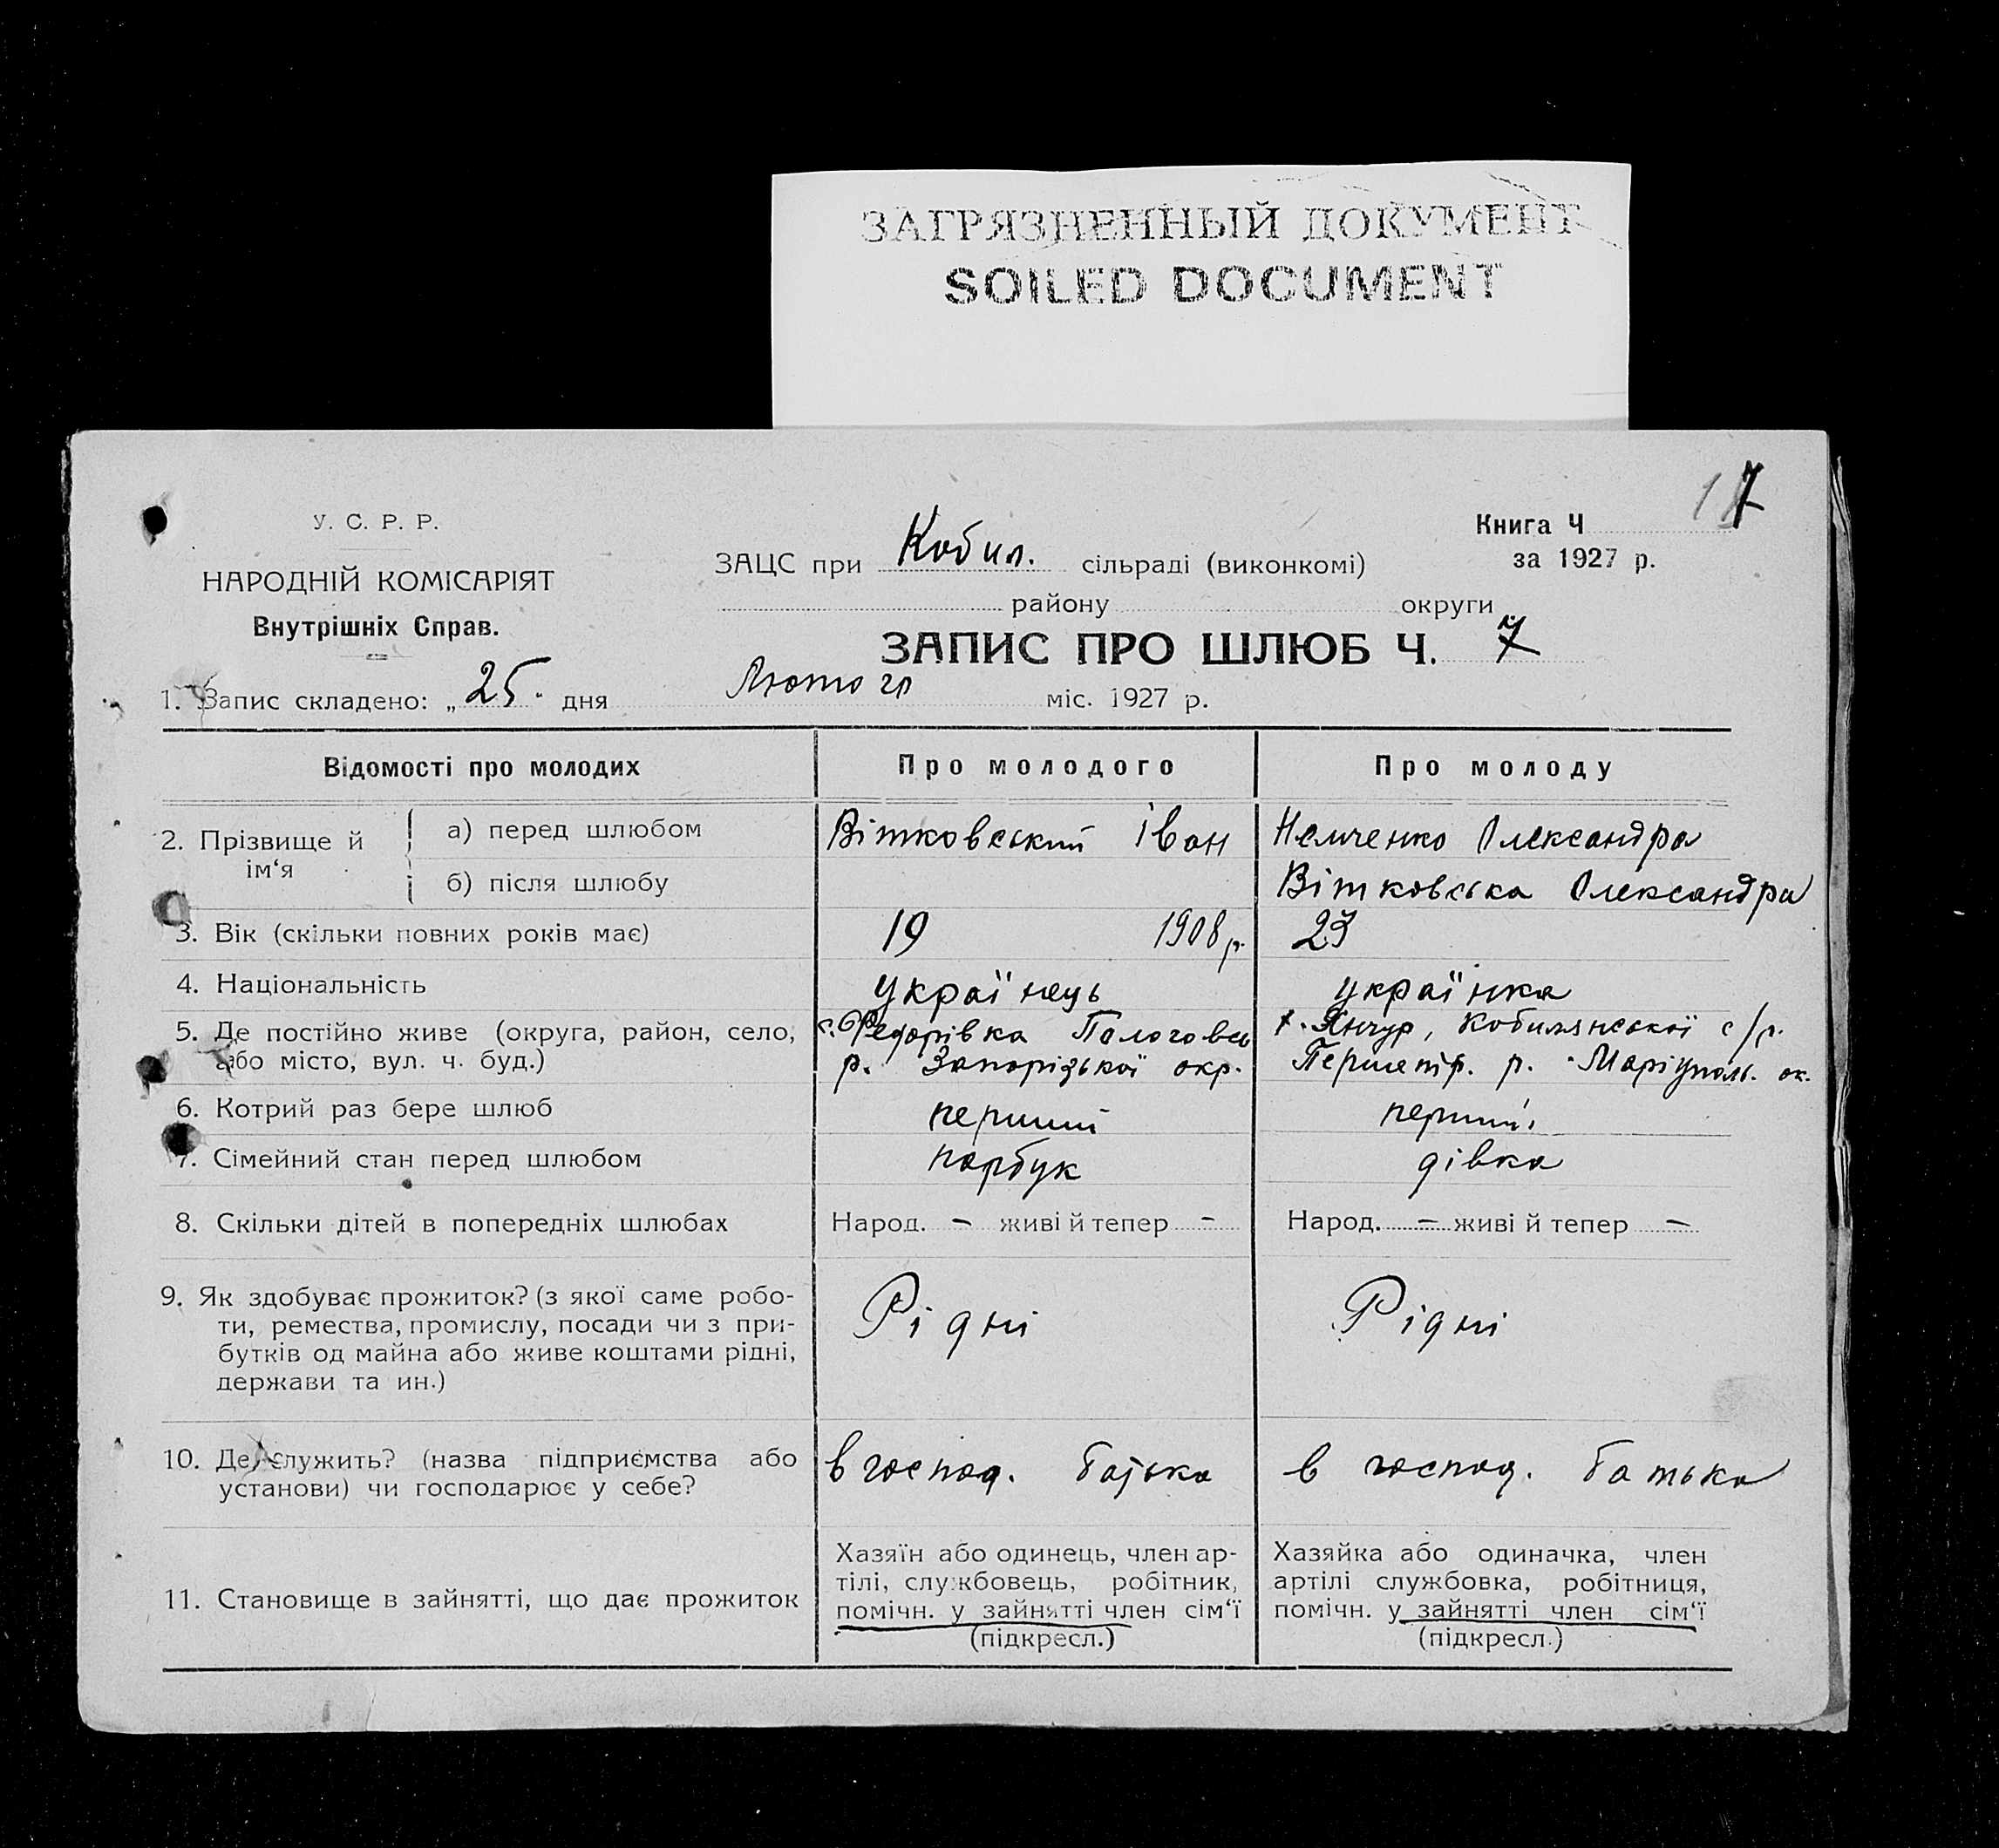 ЗАГРЯЗНЕННЫЙ ДОКУМЕНТ
SOILED DOCUMENT
17
У. С. Р. Р.
НАРОДНІЙ КОМІСАРІЯТ
Внутрішніх Справ.
ЗАЦС при Кобил. сільраді (виконкомі)
району округи
Книга Ч
за 1927 р.
ЗАПИС ПРО ШЛЮБ Ч. 7
1. Запис складено: „25" дня Лютого міс. 1927 р.
Відомості про молодих Про молодого Про молоду
2. Прізвище й ім‘я
а) перед шлюбом Вітковський Іван Немченко Олександра
б) після шлюбу Вітковська Олександра
3. Вік (скільки повних років має) 19 1908 р. 23
4. Національність українець українка
5. Де постійно живе (округа, район, село, або місто, вул. ч. буд.)
с. Федорівка Пологовськ
р. Запорізької окр.
х. Янчур, Кобилянської с/р.
Першетр. р. Маріуполь. ок.
6. Котрий раз бере шлюб перший перший
7. Сімейний стан перед шлюбом парубок дівка
8. Скільки дітей в попередніх шлюбах Народ. – живі й тепер – Народ. – живі й тепер –
9. Як здобуває прожиток? (з якої саме робо-
ти, ремества, промислу, посади чи з при-
бутків од майна або живе коштами рідні,
держави та ин.)
Рідні Рідні
10. Де служить? (назва підприємства або
установи) чи господарює у себе?
в господ. батька в господ. батька
11. Становище в зайнятті, що дає прожиток
Хазяїн або одинець, член ар-
тілі, службовець, робітник,
помічн. у зайнятті член сім‘ї
(підкресл.)
Хазяйка або одиначка, член
артілі службовка, робітниця,
помічн. у зайнятті член сім‘ї
(підкресл.)